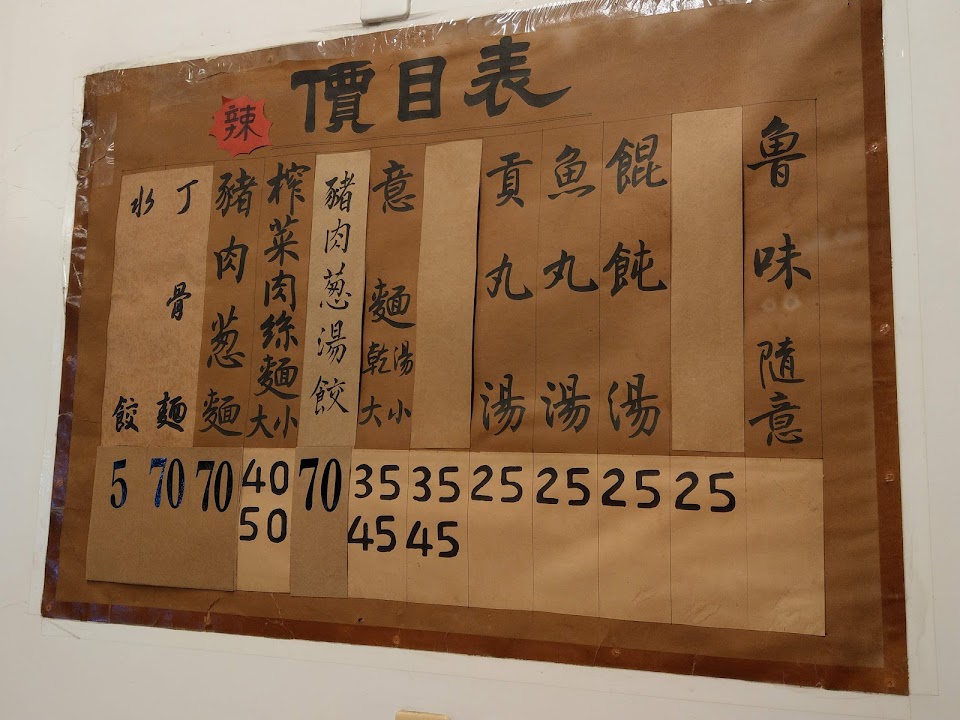 價目表
辣
魯味隨意
25
餛飩湯 25
魚丸湯 25
貢丸湯 25
35 45
意麵乾湯大小 35 45
豬肉葱湯餃 70
榨菜肉絲麵大小 40 50
豬肉葱麵 70
丁骨麵 70
水餃 5